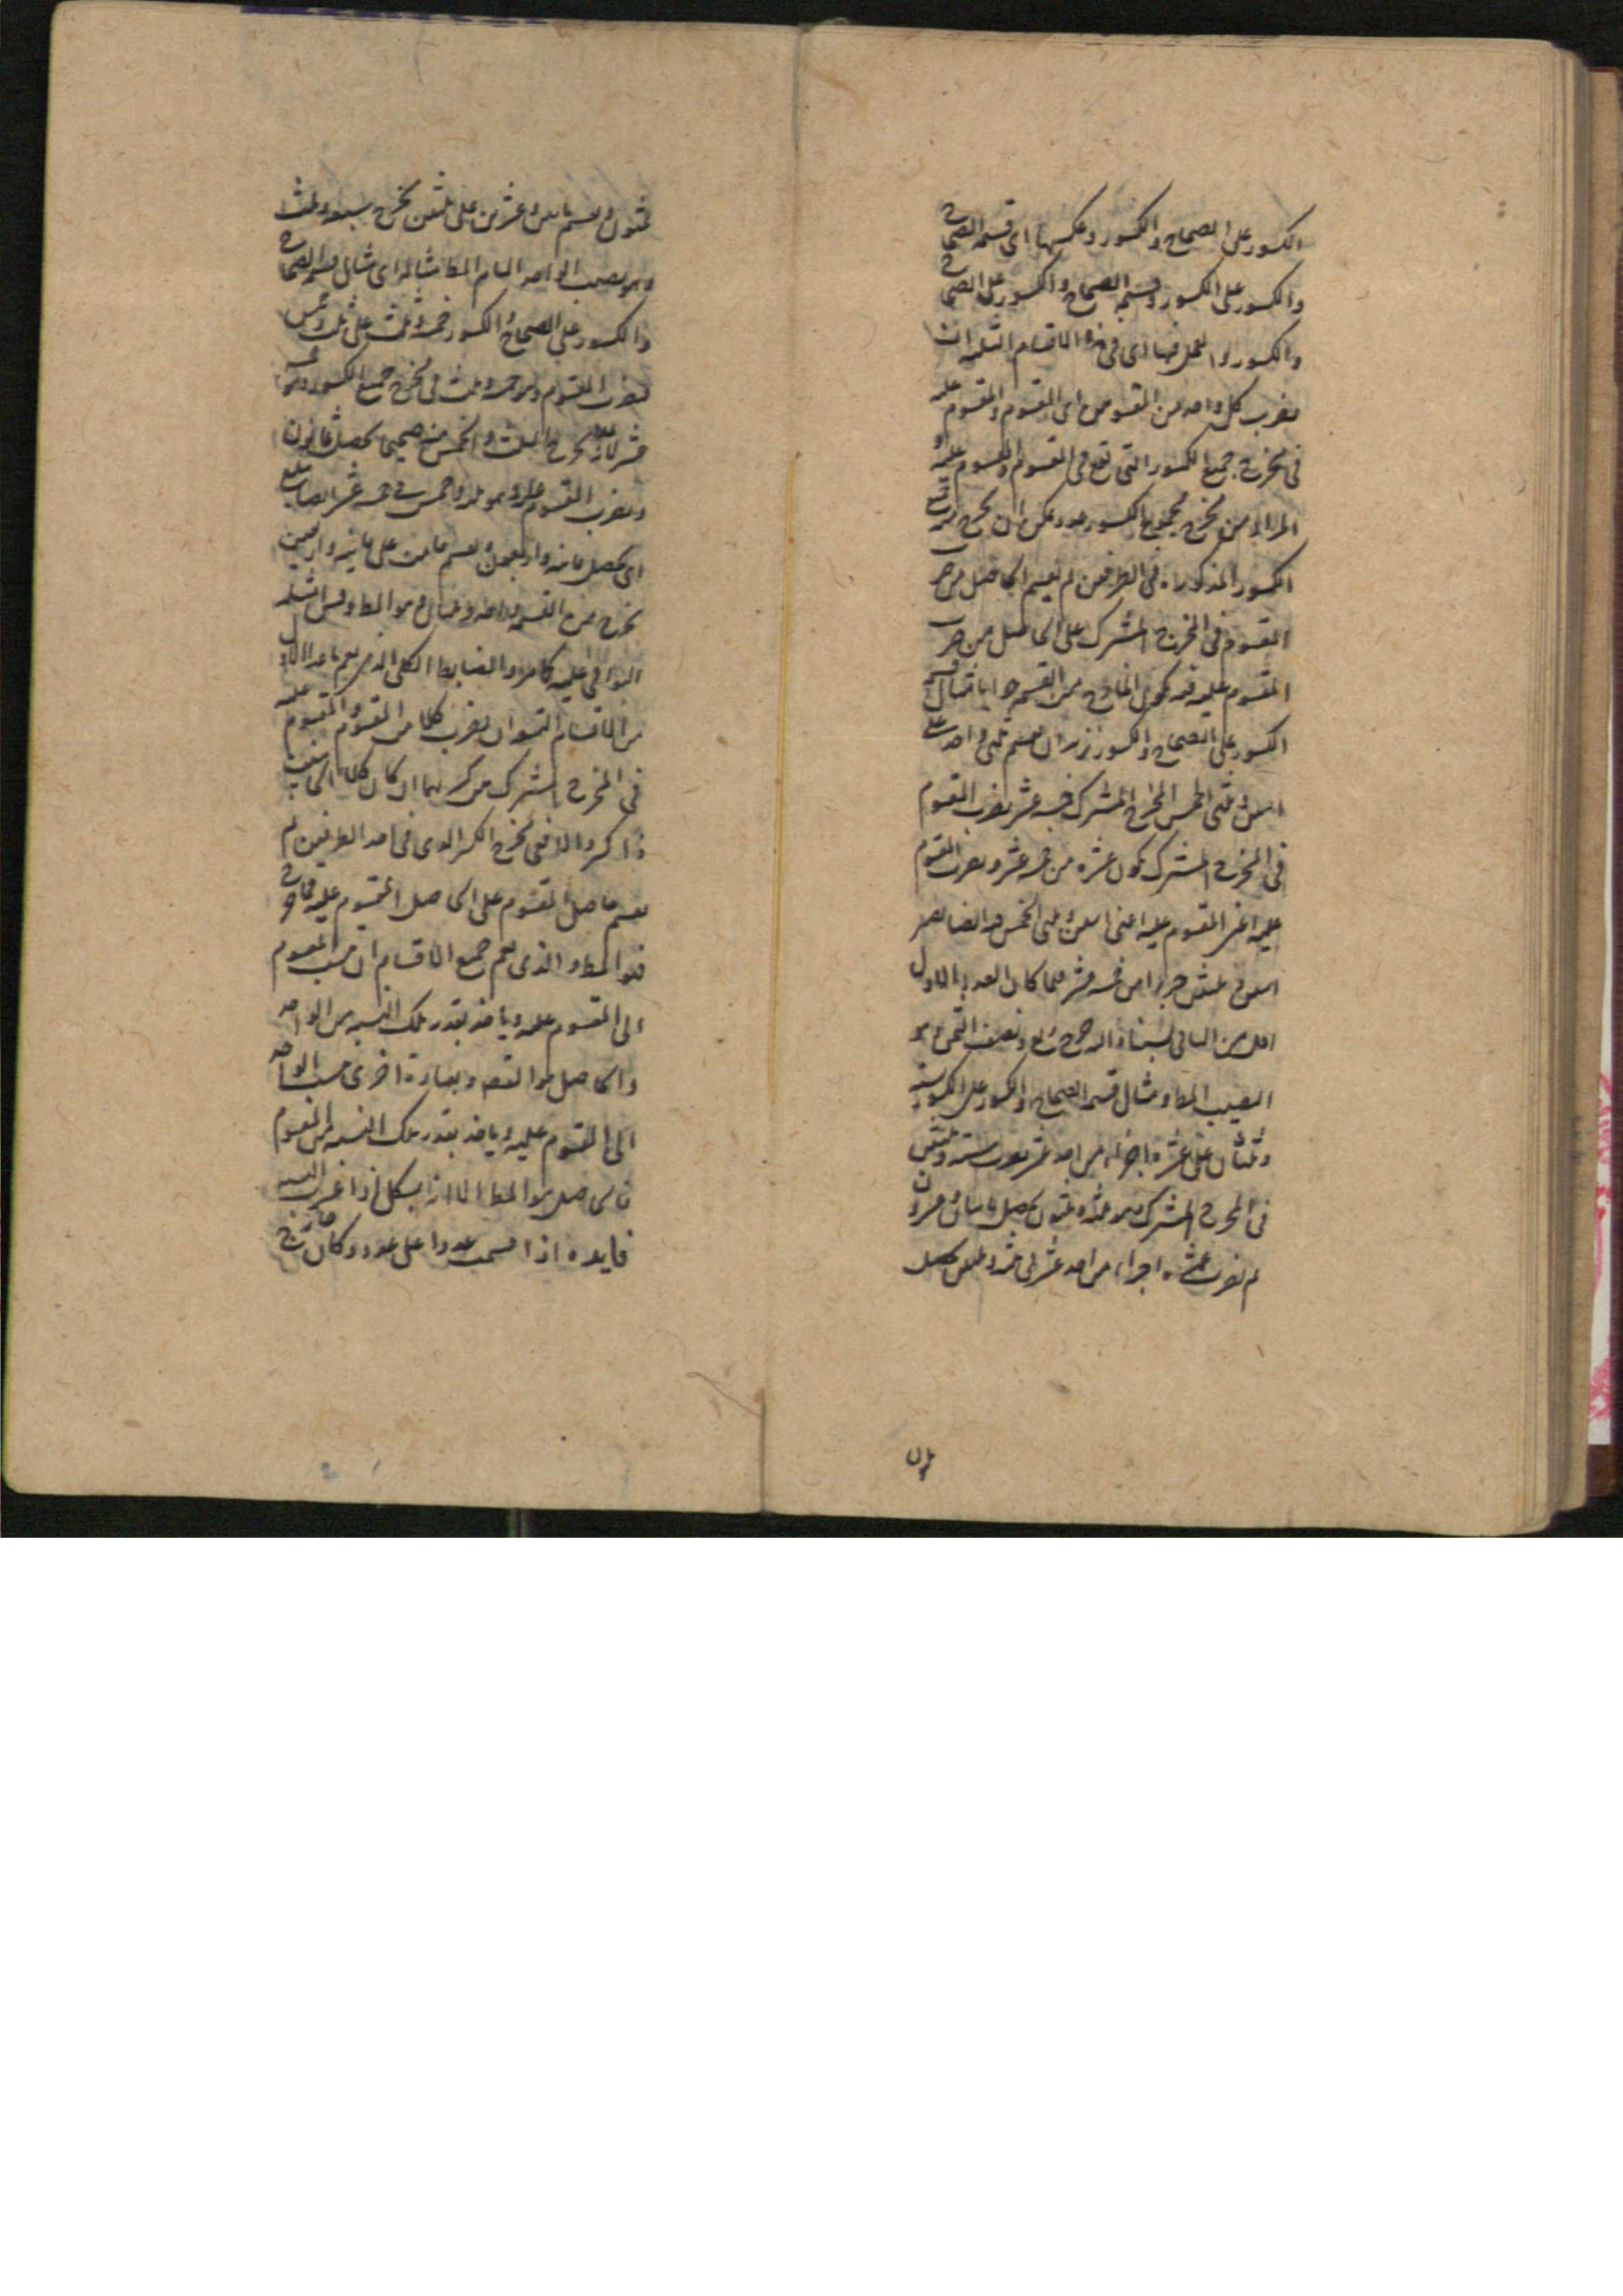 الكسور على الصحاح والكسور وعكسهما اى قسمة الصحاح
والكسور على الكسور وقسمة الصحاح والكسور على الصحاح
والكسور والعمل فيها اى فى هذه الاقسام الثلثه ان
تضرب كل واحد من المقسومين اى المقسوم والمقسوم عليه
فى مخرج جميع الكسور التى تقع فى المقسوم والمقسوم عليه
المراد من مخرج مجموع الكسور عدد يمكن ان يخرج منه
الكسور المذكوره فى الطرفين ثم تقسم الحاصل من ضرب
المقسوم فى المخرج المشترك على الحاصل من ضرب
المقسوم عليه فيه فيكون الخارج من القسمة
الكسور على الصحاح والكسور نريد ان نقسم ثلثى واحد على
اثنين وثلثى الخمس المخرج المشترك خمسة عشر نضرب المقسوم
فى المخرج المشترك يكون عشره من خمسه عشر ونضرب المقسوم
عليه اعنى المقسوم عليه اعنى اثنين وثلثى الخمس فيه ايضا يصير
اثنين وثلثين جزءا من خمسه عشر فلما كان العدد الاول
اقل من الثانى نسبناه اليه خرج ربع ونصف الثمن وهو
النصيب المط ومثال قسمة الصحاح والكسور على الكسور ستة
وثلثان على عشرة اجزاء من احد عشر نضرب ستة وثلثين
فى المخرج المشترك وهو ثلثه وثلثون يحصل مايتان وعشرون
ثم نضرب عشره اجزاء من احد عشر فى ثلثه وثلثين يحصل
ثلثون
ثلثون ونقسم مايتين وعشرين على ثلثين يخرج سبعة وثلث
وهو نصيب الواحد التام المط مثاله اى مثال قسمة الصحاح
والكسور على الصحاح والكسور خمسة وثلث على ثلثة وخمس
نضرب المقسوم وهو خمسة وثلث فى مخرج جميع الكسور وهو خمسة
عشر لانه مخرج الثلث والخمس منه صحيحى يحصل ثمانون
ونضرب المقسوم عليه وهو ثلثه وخمس فى خمسة عشر ايضا
اى يحصل ثمانيه واربعون ونقسم ثمانين على ثمانيه واربعين
يخرج من القسمة واحد وثلثان وهو المط وقس امثلة
البواقى عليه كما مر والضابط الكلى الذى يعم ما عدا الاول
من الاقسام التسعة ان يضرب كلا من المقسوم والمقسوم عليه
فى المخرج المشترك من كسريهما ان كان كلا الجانبين
ذا كسر والا ففى مخرج الكسر الذى فى احد الطرفين ثم
يقسم حاصل المقسوم على الحاصل المقسوم عليه فما خرج
فهو المط والذى يعم جميع الاقسام ان ينسب المقسوم
الى المقسوم عليه وياخذ بقدر تلك النسبه من الواحد
والحاصل هو القصد وبعبارة اخرى ينسب الواحد
الى المقسوم عليه وياخذ بقدر تلك النسبه من المقسوم
فالحاصل هو المط الا انه يشكل اذا
فايده اذا قسمت عددا على عدد وكان خارج